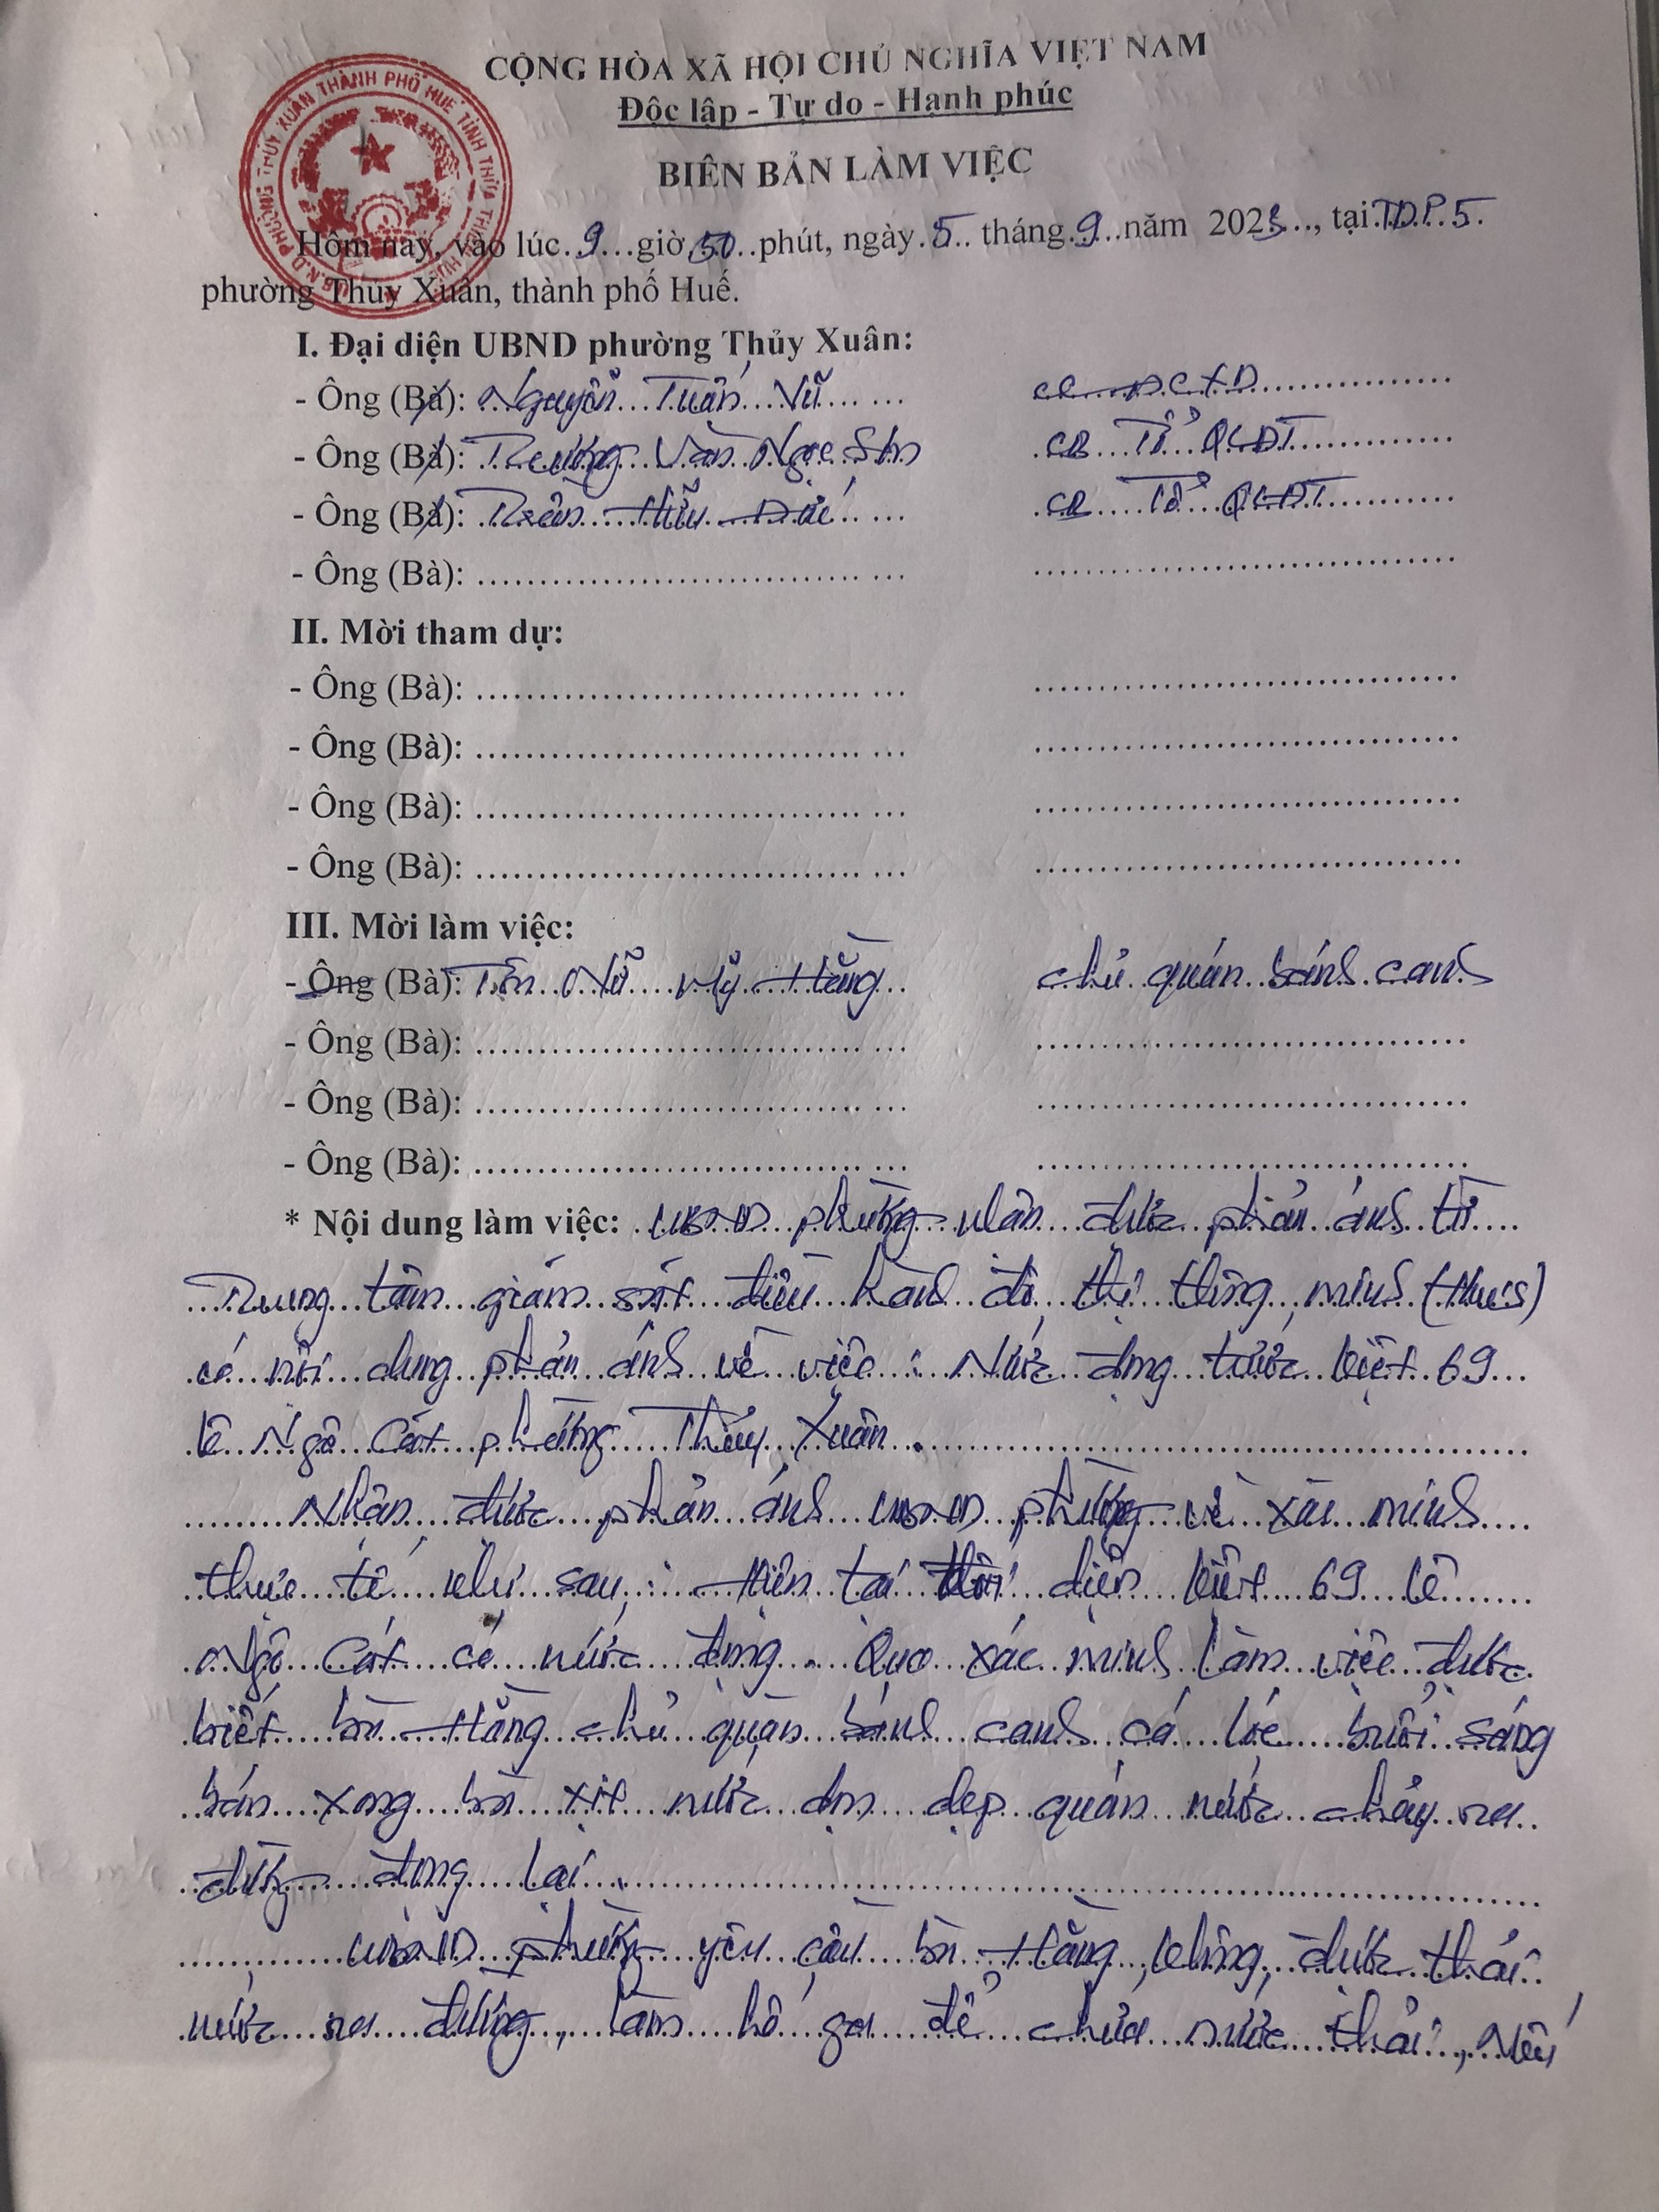 CỘNG HÒA XÃ HỘI CHỦ NGHĨA VIỆT NAM
Độc lập - Tự do - Hạnh phúc
BIÊN BẢN LÀM VIỆC
U.B.N.D PHƯỜNG THỦY XUÂN THÀNH PHỐ HUẾ TỈNH THỪA THIÊN HUẾ
Hôm nay, vào lúc 9 giờ 50 phút, ngày 5 tháng 9 năm 2023, tại TDP 5
phường Thủy Xuân, thành phố Huế.
I. Đại diện UBND phường Thủy Xuân:
- Ông (Bà): Nguyễn Tuấn Vũ
- Ông (Bà): Trương Văn Ngọc Sơn CB Tổ QLĐT
- Ông (Bà): Trần Hữu Đức CB Tổ QLĐT
- Ông (Bà):
II. Mời tham dự:
- Ông (Bà):
- Ông (Bà):
- Ông (Bà):
- Ông (Bà):
III. Mời làm việc:
- Ông (Bà): Tôn Nữ Mỹ Hằng chủ quán bánh canh
- Ông (Bà):
- Ông (Bà):
- Ông (Bà):
* Nội dung làm việc: UBND phường nhận được phản ánh từ
Trung tâm giám sát điều hành đô thị thông minh (HueS)
có nội dung phản ánh về việc: Nước đọng trước kiệt 69
Lê Ngô Cát phường Thủy Xuân.
Nhận được phản ánh UBND phường về xác minh
thực tế như sau: Hiện tại đối diện kiệt 69 Lê
Ngô Cát có nước đọng. Qua xác minh làm việc được
biết bà Hằng chủ quán bánh canh cá lóc buổi sáng
bán xong bà xịt nước dọn dẹp quán nước chảy ra
đường đọng lại.
UBND phường yêu cầu bà Hằng không được thải
nước ra đường, làm hố ga để chứa nước thải, Nếu